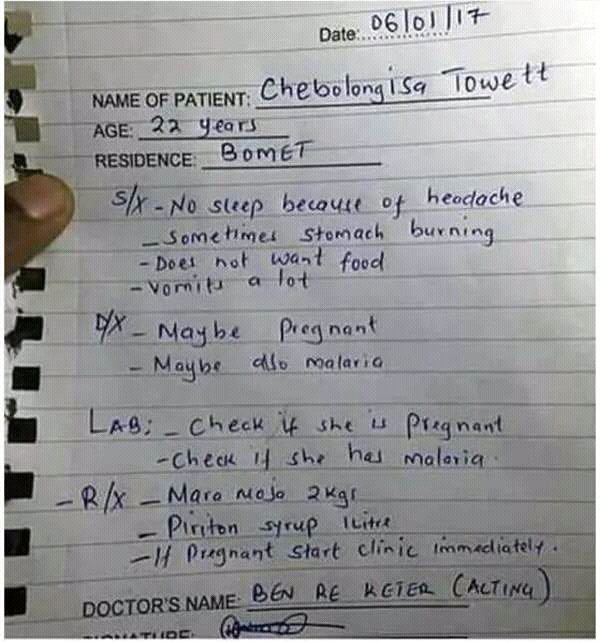 Date: 06/01/17
NAME OF PATIENT: Chebolongisa Towett
AGE: 22 years
RESIDENCE: BOMET
S/X - No sleep because of headache
- Sometimes stomach burning
- Does not want food
- Vomits a lot
D/X - Maybe Pregnant
- Maybe also malaria
LAB: - Check if she is pregnant
- Check if she has malaria.
- R/X - Mara Moja 2kgs
- Piriton syrup 1Litre
- If Pregnant start clinic immediately.
DOCTOR'S NAME: BEN RE KETER (ACTING)
SIGNATURE: